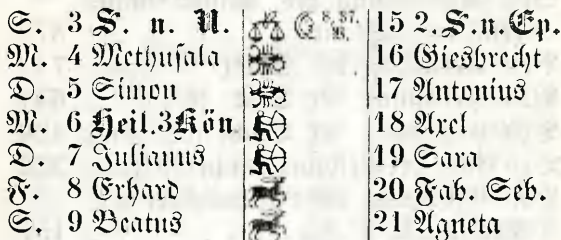 S. 3 S. n. N. ☾ 8, 37. 15 2. S. n. Ep.
M. 4 Methusala 16 Giesbrecht
D. 5 Simon 17 Antonius
M. 6 Heil. 3 Kön 18 Axel
D. 7 Julianus 19 Sara
F. 8 Erhard 20 Fab. Seb.
S. 9 Beatus 21 Agneta